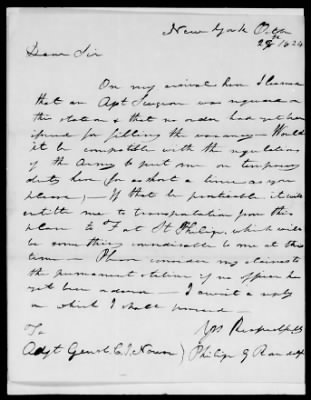 New York Octr
28th 1824
Dear Sir
On my arrival here I learn
that an Asst Surgeon was required on
this station & that no order had yet been
issued for filling the vacancy – Would
it be compatible with the regulations
of the Army to put me on temporary
duty here (for as short a time as you
please) – If that be practicable it will
entitle me to transportation from this
place to Fort St Philip, which will
be something considerable to me at this
time – Please consider my claims to
the permanent station if no officer has
yet been ordered – I await a reply
on which I shall proceed –
Yrs Respectfully
To
Adjt Genrl C. J. Nourse) Philip G Randolph